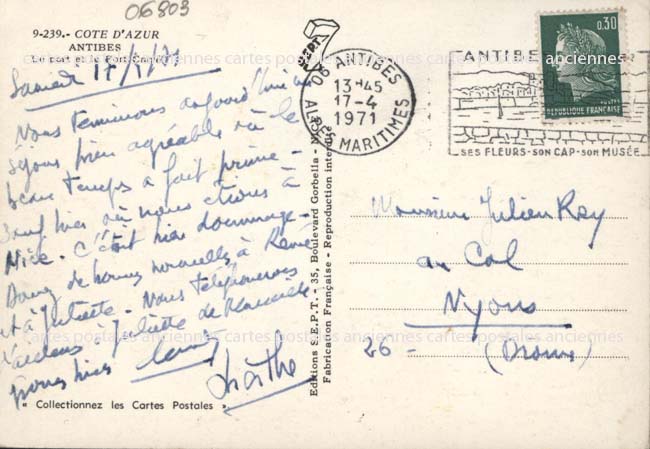 06803
9-239.- COTE D'AZUR
ANTIBES
Le port et le Fort Carré
Samedi 17/4/71
Nous terminons aujourd'hui un
séjour bien agréable où le
beau temps a fait prime -
Sauf hier où nous étions à
Nice. C'était bien dommage -
Donnez de bonnes nouvelles à René
et à Juliette. Nous téléphonerons
à Juliette de Marseille
Marthe
" Collectionnez les Cartes Postales "
Editions S.E.P.T. - 35, Boulevard Gorbella -
Fabrication Française - Reproduction interdite
SEPT
06 ANTIBES
13H45
17-4
1971
ALPES MARITIMES
ANTIBES
SES FLEURS-SON CAP-SON MUSÉE
0,30
POSTES
REPUBLIQUE FRANÇAISE
Monsieur Julien Rey
au Col
Nyons
26 - (Drome)
cartes postales anciennes cartes postales anciennes cartes postales anciennes
cartes postales anciennes cartes postales anciennes cartes postales anciennes